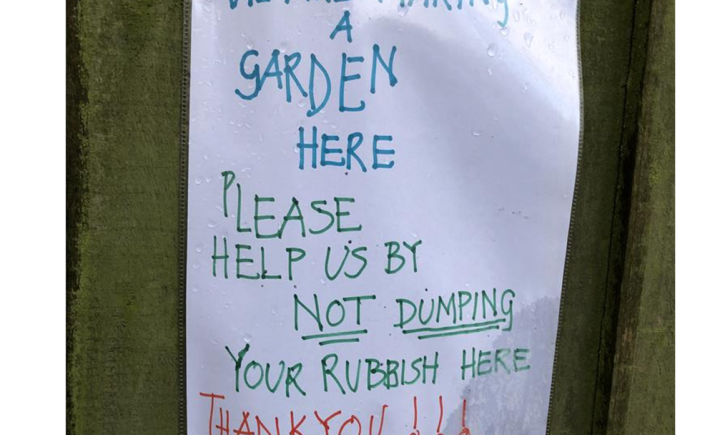 WE ARE MAKING
A
GARDEN
HERE
PLEASE
HELP US BY
NOT DUMPING
YOUR RUBBISH HERE
THANK YOU !!!